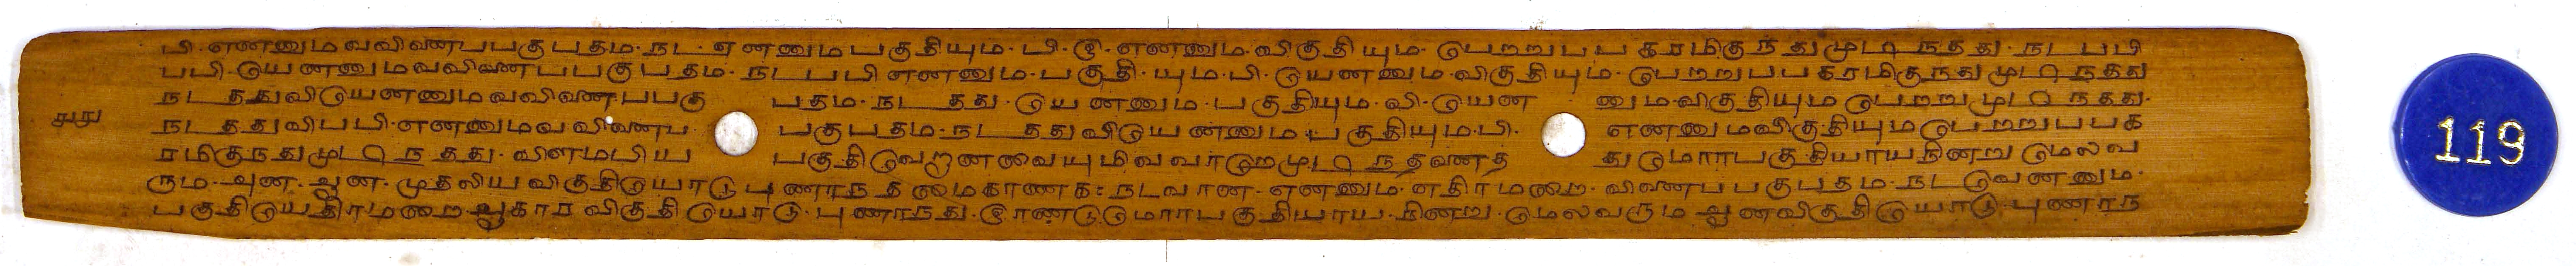 பி. எனனுமவவிவணபபகுபதம. நட. எனனுமபகுதியும. பி. இ. எனனும. விகுதியும. பெறறுபபகரமிகுநதுமுடிநதது. நடபபி
பபி. யெனனுமவவிவணபபகுபதம. நடபபிஎனனும. பகுதி. யும. பி. யெனனும. விகுதியும. பெறறுபபகரமிகுநதுமுடிநதது
நடததுவியெனனுமவவிவணபபகு பதம. நடதது. யெனனும. பகுதியும. வி. யென னும. விகுதியுமபெறறுமுடிநதது.
நடததுவிபபி. எனனுமவவிவணப பகுபதம. நடததுவியெனனும. பகுதியும. பி. எனனுமவிகுதியுமபெறறுபபக
ரமிகுநதுமுடிநதது. விளமபிய பகுதிவேறாணவையுமிவவாறெமுடிநதவணத துமொரபகுதியாயநினறு மெலவ
ரும. அன. ஆன. முதலியவிகுதியொடு புணரநதமைகாணக: நடவான. எனனும. எதிரமறை. விவணபபகுபதம. நடவெனனும.
பகுதியெதிரமறைஆகாரவிகுதியொடு. புணரநது. இரணடுமொரபகுதியாய. நினறு. மெலவருமஆனவிகுதியொடு. புணரந
119